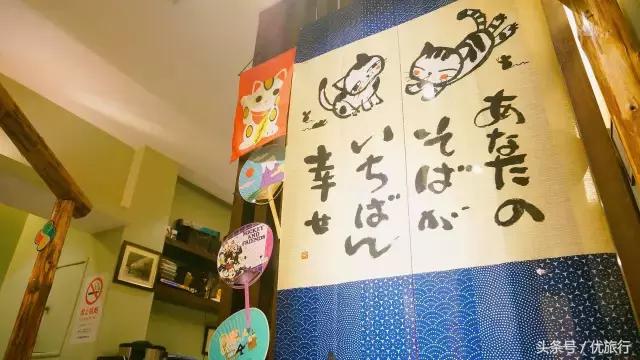 あなたの
そばが
いちばん
幸せ
MICKEY AND
FRIENDS
禁止吸烟
头条号／优旅行